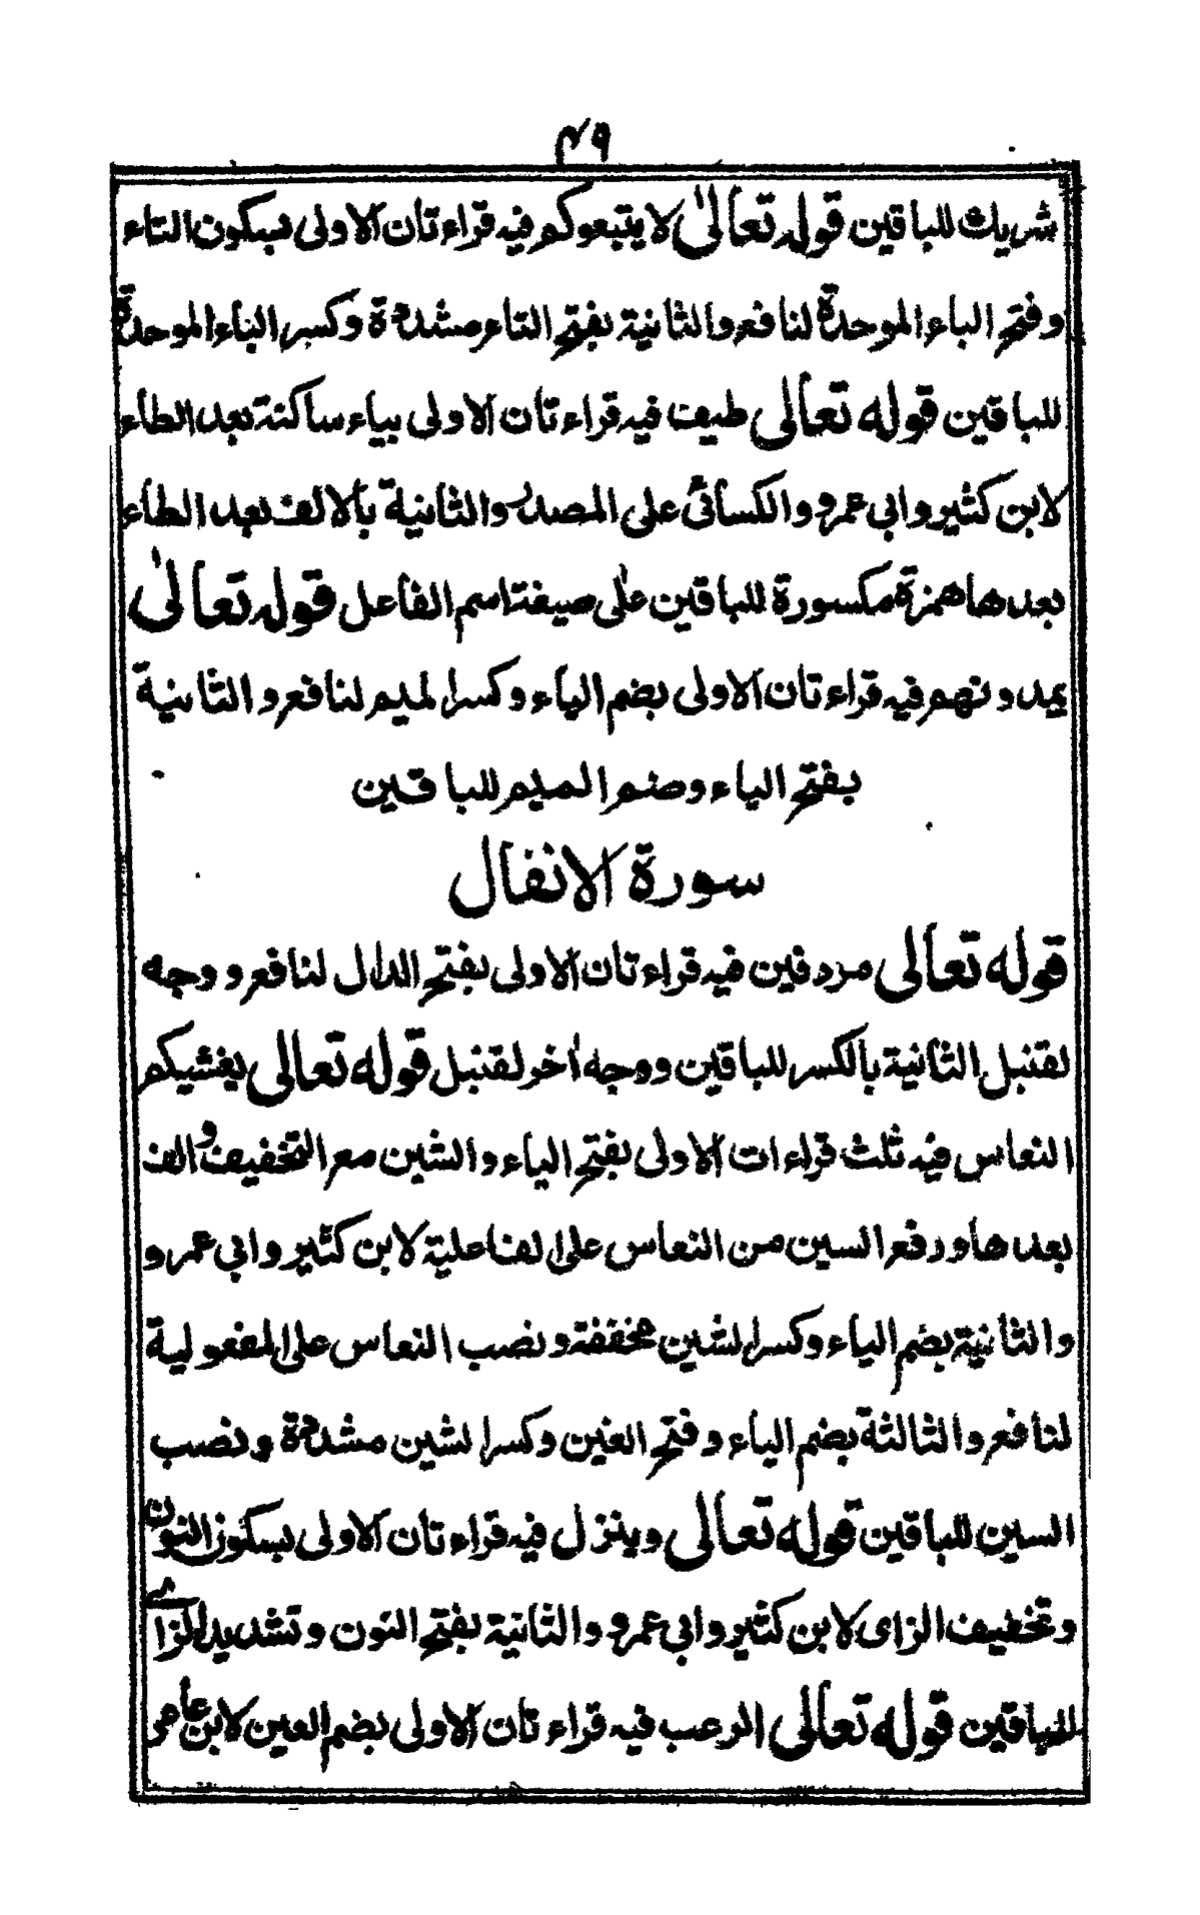 ۴۹
شريك للباقين قوله تعالىٰ لا يتبعوكم فيه قراءتان الاولى بسكون التاء
وفتح الباء الموحدة لنافع والثانية بفتح التاء مشددة وكسر الباء الموحدة
للباقين قوله تعالى طيف فيه قراءتان الاولى بياء ساكنة بعد الطاء
لابن كثير وابي عمرو والكسائى على المصدر والثانية بالالف بعد الطاء
بعدها همزة مكسورة للباقين علٰى صيغة اسم الفاعل قوله تعالىٰ
يمدونهم فيه قراءتان الاولى بضم الياء وكسر الميم لنافع والثانية
بفتح الياء وضم الميم للباقين
سورة الانفال
قوله تعالى مردفين فيه قراءتان الاولى بفتح الدال لنافع ووجه
لقنبل الثانية بالكسر للباقين ووجه اخر لقنبل قوله تعالى يغشيكم
النعاس فيه ثلث قراءات الاولى بفتح الياء والشين مع التخفيف والف
بعدها ورفع السين من النعاس على الفاعلية لابن كثير وابي عمرو
والثانية بضم الياء وكسر الشين مخففة ونصب النعاس على المفعولية
لنافع والثالثة بضم الياء وفتح الغين وكسر الشين مشددة ونصب
السين للباقين قوله تعالى وينزل فيه قراءتان الاولى بسكون النون
وتخفيف الزاى لابن كثير وابي عمرو والثانية بفتح النون وتشديد الزاى
للباقين قوله تعالى الرعب فيه قراءتان الاولى بضم العين لابن عامر